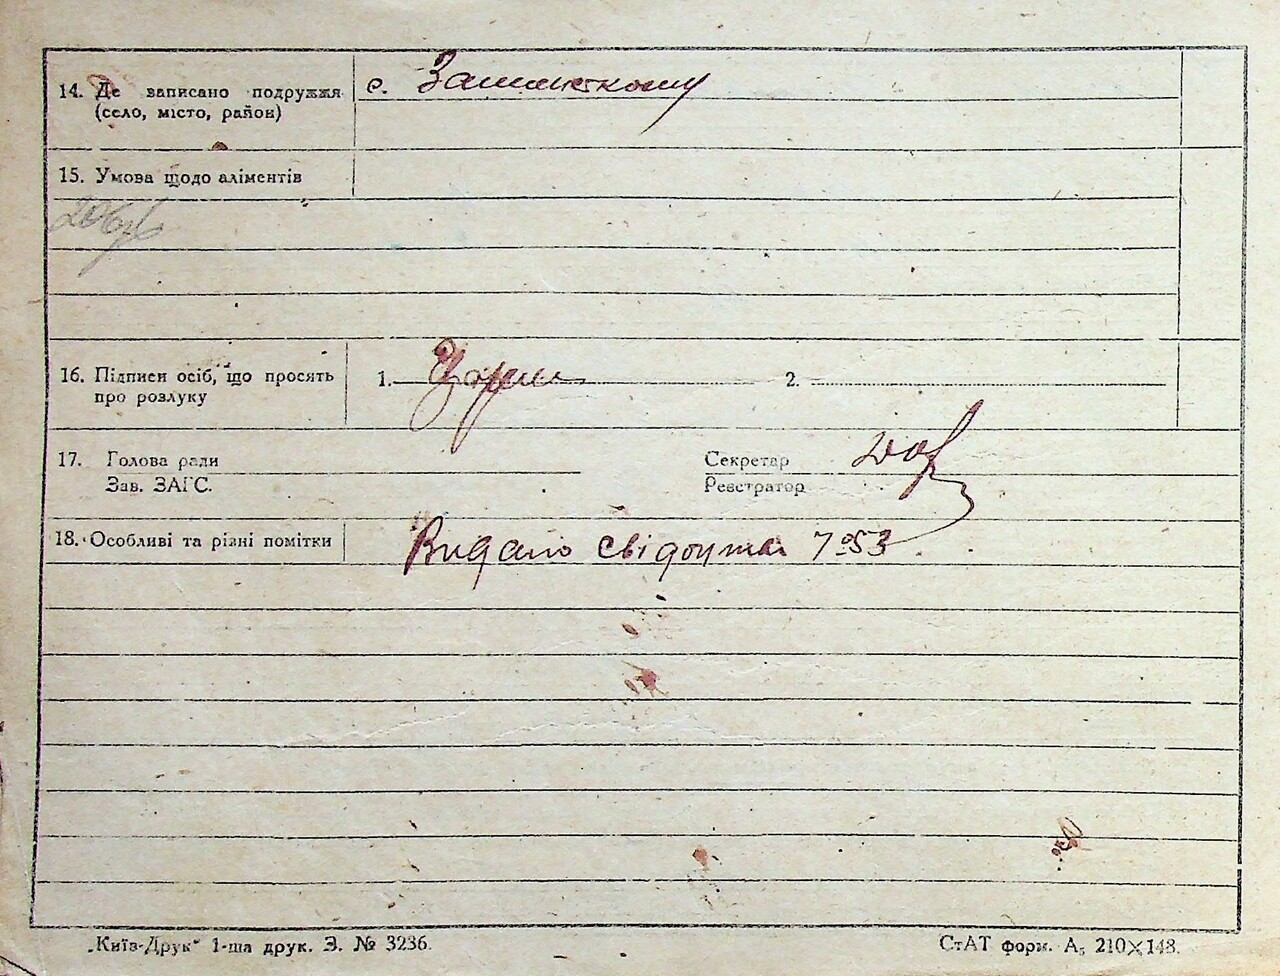 14. Де записано подружжя
(село, місто, район)
с.
15. Умова щодо аліментів
16. Підписи осіб, що просять
про розлуку
1.
2.
17. Голова ради
Зав. ЗАГС.
Секретар
Реєстратор
18. Особливі та різні помітки
Видано свідоцтва 7053
„Київ-Друк“ 1-ша друк. З. № 3236.
СтАТ форм. А₅ 210×148.